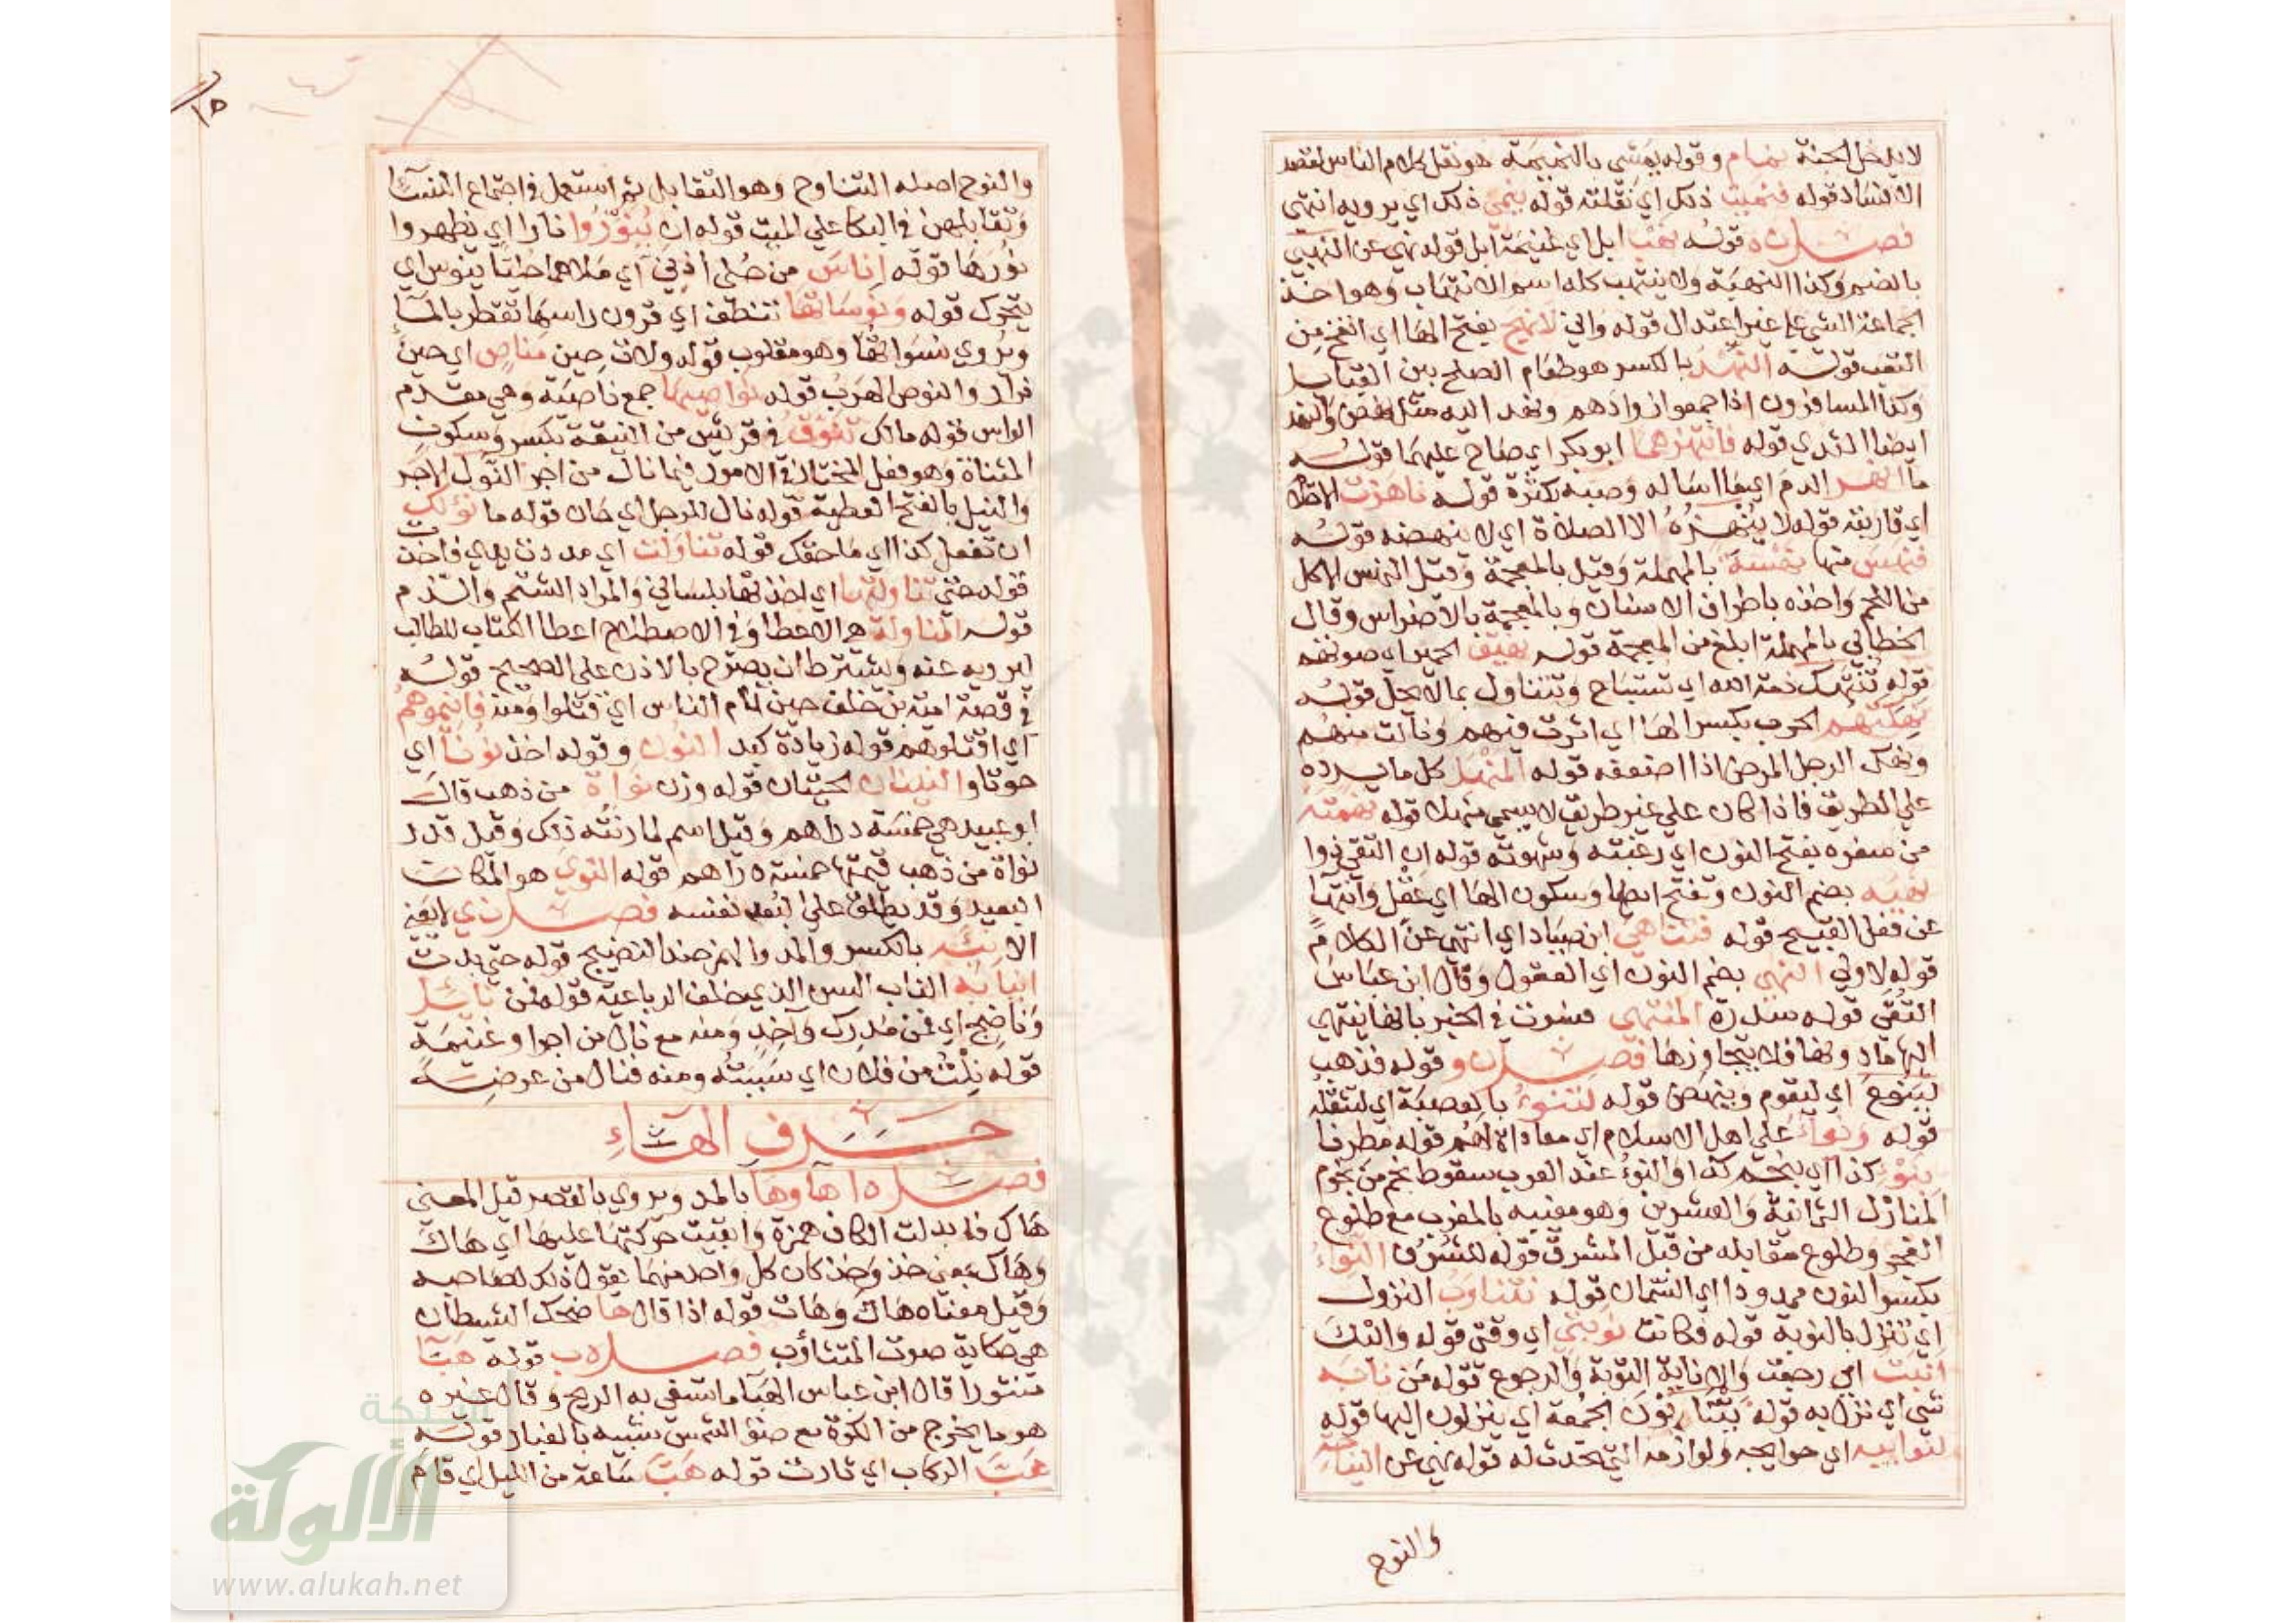 لا يدخل الجنة نمام وقوله يمشي بالنميمة هو نقل كلام الناس لقصد
الافساد قوله فنميت ذلك اي نقلته قوله ينمي ذلك اي يرويه انتهى
فصل ن ه قوله نهب ابل اي غنيمة ابل قوله نهي عن النهبى
بالضم وكذا النهبة ولا ينتهب كله اسم الانتهاب وهو اخذ
الجماعة الشي على غير اعتدال قوله واني لانهج بفتح الها اي انفخ من
التعب قوله النهد بالكسر هو طعام الصلح بين القبايل
وكذا المسافرون اذا جمعوا ازوادهم ونهد اليه مثل نهض والنهد
ايضا الثدي قوله فانتهرهما ابو بكر اي صاح عليهما قوله
ما انهر الدم اي ما اساله وصبه بكثرة قوله ناهزت الاحتلام
اي قاربته قوله لا ينهزه الا الصلاة اي لا ينهضه قوله
فنهس منها نهسة بالمهملة وقيل بالمعجمة وقيل النهس الاكل
من اللحم واخذه باطراف الاسنان وبالمعجمة بالاضراس وقال
الخطابي بالمهملة ابلغ من المعجمة قوله نهيق الحمير اي صوتهم
قوله تنتهك ذمة الله اي تستباح وتتناول بما لا يحل قوله
نهكتهم الحرب بكسر الها اي اثرت فيهم ونالت منهم
ونهك الرجل المرض اذا اضعفه قوله المنهل كل ما يرده
علي الطريق فاذا كان علي غير طريق لا يسمى منهلا قوله نهمته
من سفره بفتح النون اي رغبته وشهوته قوله ان التقي ذوا
نهية بضم النون وتفتح ايضا وسكون الها اي عقل وانتها
عن فعل القبيح قوله فتناهى ابن صياد اي انتهى عن الكلام
قوله لاولي النهى بضم النون اي العقول وقال ابن عباس
التقى قوله سدرة المنتهى فسرت في الخبر بانها ينتهي
اليها ما دونها فلا يتجاوزها فصل ن و قوله فذهب
لينوء اي ليقوم وينهض قوله لتنوء بالعصبة اي لتثقل
قوله ونواء علي اهل الاسلام اي معاداة لهم قوله مطرنا
بنوء كذا اي بنجم كذا والنوء عند العرب سقوط نجم من نجوم
المنازل الثمانية والعشرين وهو مغيبه بالمغرب مع طلوع
الفجر وطلوع مقابله من قبل المشرق قوله للشرف النواء
بكسر النون ممدودا اي السمان قوله نتناوب النزول
اي ننزل بالنوبة قوله فكانت نوبتي اي وقتي قوله واليك
انبت اي رجعت والانابة التوبة والرجوع قوله من نابه
شي اي نزل به قوله ينتابون الجمعة اي ينزلون اليها قوله
لنوايبه اي حوايجه ولوازمه التي تحدث له قوله نهي عن النياحة
والنوح
والنوح اصله التناوح وهو التقابل ثم استعمل في اجتماع النسا
وتقابلهن في البكا علي الميت قوله ان ينوروا نارا اي يظهروا
نورها قوله اناس من حلي اذني اي ملاهما حليا ينوس اي
يتحرك قوله ونوساتها تنطف اي قرون راسها تقطر بالما
ويروي نسواتها وهو مقلوب قوله ولات حين مناص اي حين
فرار والنوص الهرب قوله نواصيها جمع ناصية وهي مقدم
الراس قوله مالك تنوق في قريش من النيقة بكسر وسكون
المثناة وهو فعل المختار في الامور فيما نال من اجر النول الاجر
والنيل بالفتح العطية قوله نال للرجل اي حان قوله ما نولك
ان تفعل كذا اي ما حقك قوله تناولت اي مددت يدي فاخذت
قوله حتي تناولتها اي اخذتها بلساني والمراد الشتم والذم
قوله المناولة هي الاعطا وفي الاصطلاح اعطا الكتاب للطالب
ليرويه عنه ويشترط ان يصرح بالاذن علي الصحيح قوله
في قصة امية بن خلف حين نام الناس اي قتلوا ومنه فانيموهم
اي اقتلوهم قوله زيادة كبد النون وقوله اخذ نونا اي
حوتا والنينان الحيتان قوله وزن نواة من ذهب قال
ابو عبيد هي خمسة دراهم وقيل اسم لما زنته ذلك وقيل قدر
نواة من ذهب قيمتها خمسة دراهم قوله النوي هو المكان
البعيد وقد يطلق علي البعد نفسه فصل ن ي
الانية بالكسر والمد والهمز ضد النضيج قوله حتي بدت
انيابه الناب السن الذي خلف الرباعية قوله فمن نايل
وناضح اي فمن مدرك واخذ ومنه مع نال من اجر او غنيمة
قوله نلت من فلان اي سببته ومنه فنال من عرضه
حرف الهاء
فصل ه ا ها وها بالمد ويروي بالقصر قيل المعنى
هاك فابدلت الكاف همزة وابقيت حركتها عليها اي هاك
وهاك بمعنى خذ وخذ كان كل واحد منهما يقول ذلك لصاحبه
وقيل معناه هاك وهات قوله اذا قال ها ضحك الشيطان
هي حكاية صوت المتثاوب فصل ه ب قوله هبا
منثورا قال ابن عباس الهبا ما تسفي به الريح وقال غيره
هو ما يخرج من الكوة مع ضوء الشمس شبيه بالغبار قوله
هبت الركاب اي ثارت قوله هب ساعة من الليل اي قام
شبكة
الألوكة
www.alukah.net